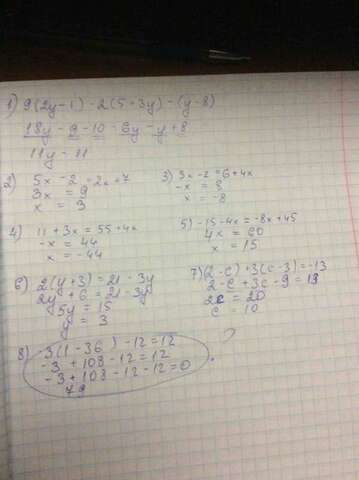 1) 9(2y-1)-2(5+3y)-(y-8)
18y-9-10-6y-y+8
11y-11
2) 5x-2=2x+7
3x=9
x=3
3) 3x-2=6+4x
-x=8
x=-8
4) 11+3x=55+4x
-x=44
x=-44
5) -15-4x=-8x+45
4x=60
x=15
6) 2(y+3)=21-3y
2y+6=21-3y
5y=15
y=3
7) (2-c)+3(c-3)=-13
2-c+3c-9=13
2c=20
c=10
8) -3(1-36)-12=12
-3+108-12=12
-3+108-12-12=0
?